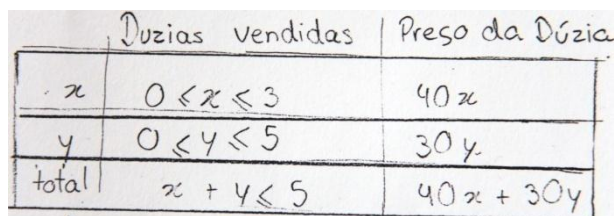 Duzias vendidas | Preso da Dúzia
x | 0 ⩽ x ⩽ 3 | 40x
y | 0 ⩽ y ⩽ 5 | 30y.
total | x + y ⩽ 5 | 40x + 30y